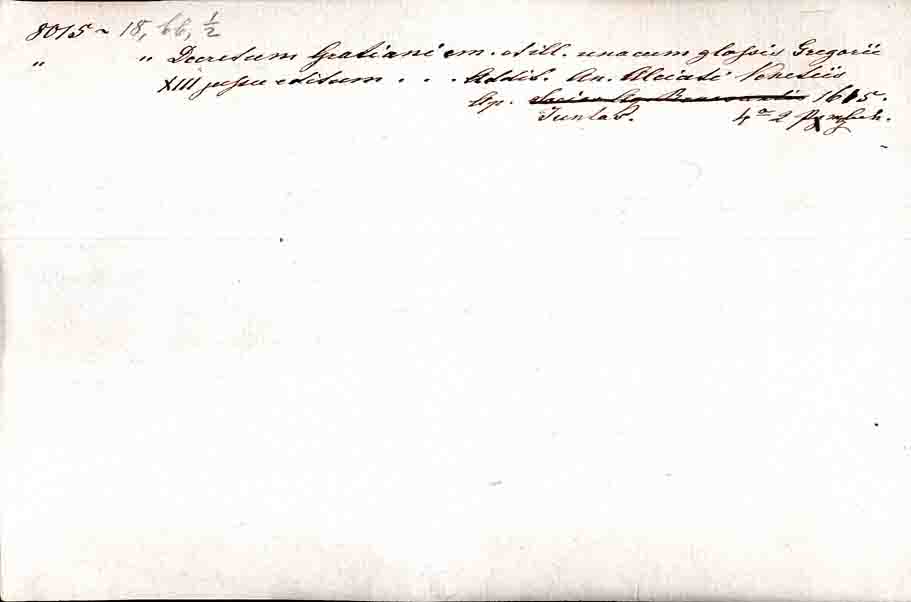 8015 ~ 18, bb, 1/2
" " Decretum Gratiani em. et ill. una cum glossis Gregorii
XIII jussu editum . . . Addit. An. Alciati Venetiis
Ap. 1615.
Juntas. 4° 2